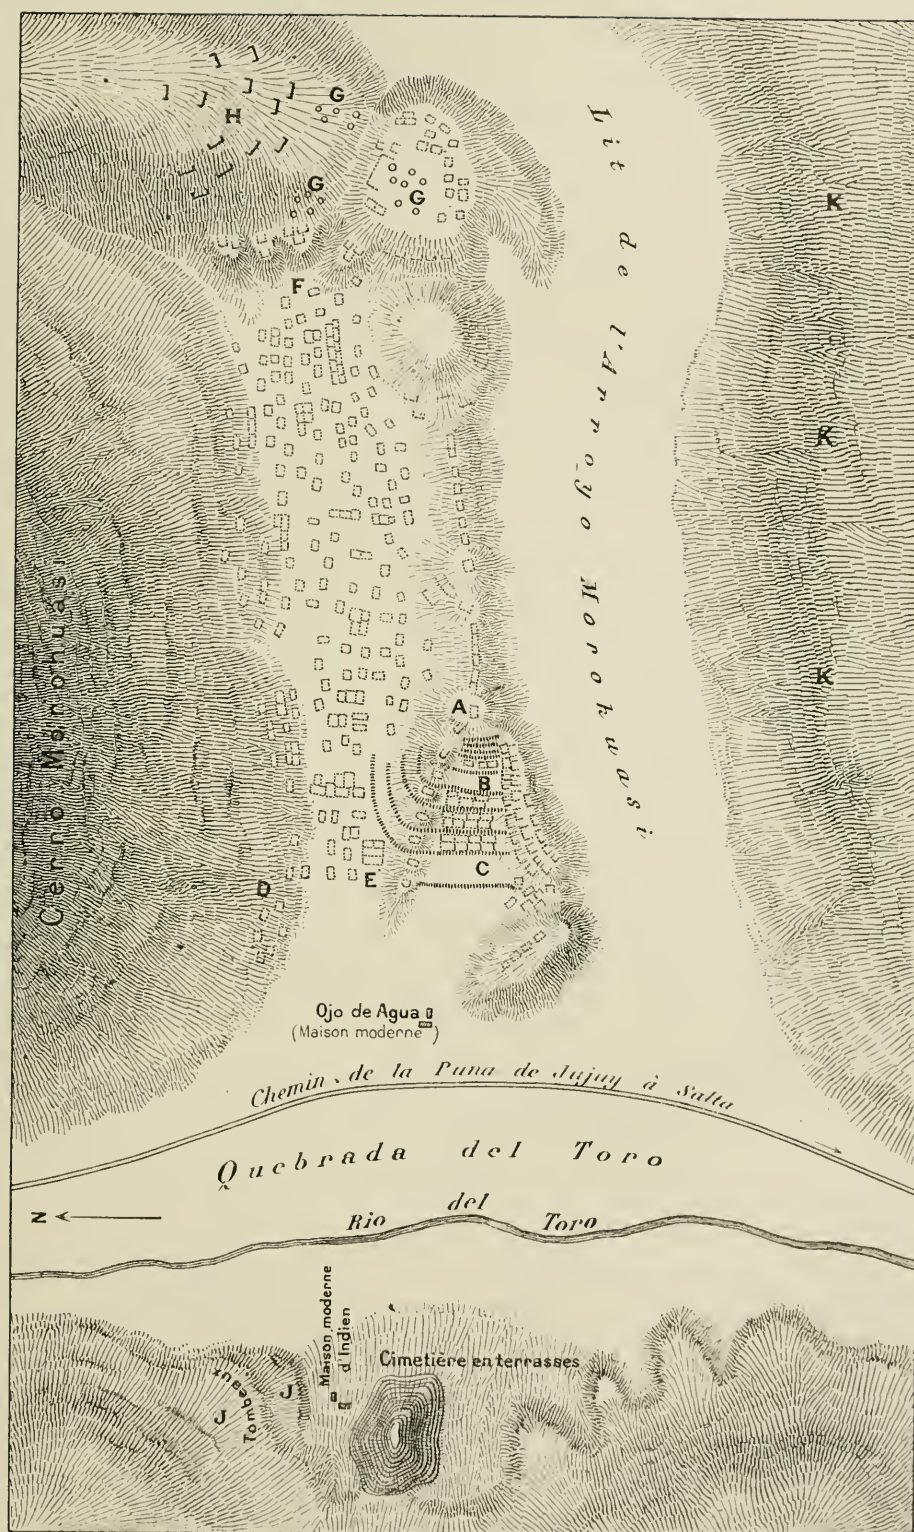 G
H
G
G
K
F
Lit de l'Arroyo Morohwasi
K
K
Cerrito Morohuasi
A
B
C
D
E
Ojo de Agua
(Maison moderne)
Chemin de la Puna de Jujuy à Salta
Quebrada del Toro
N
Rio del Toro
Maison moderne
d'Indien
Cimetière en terrasses
J
J
Tombeaux